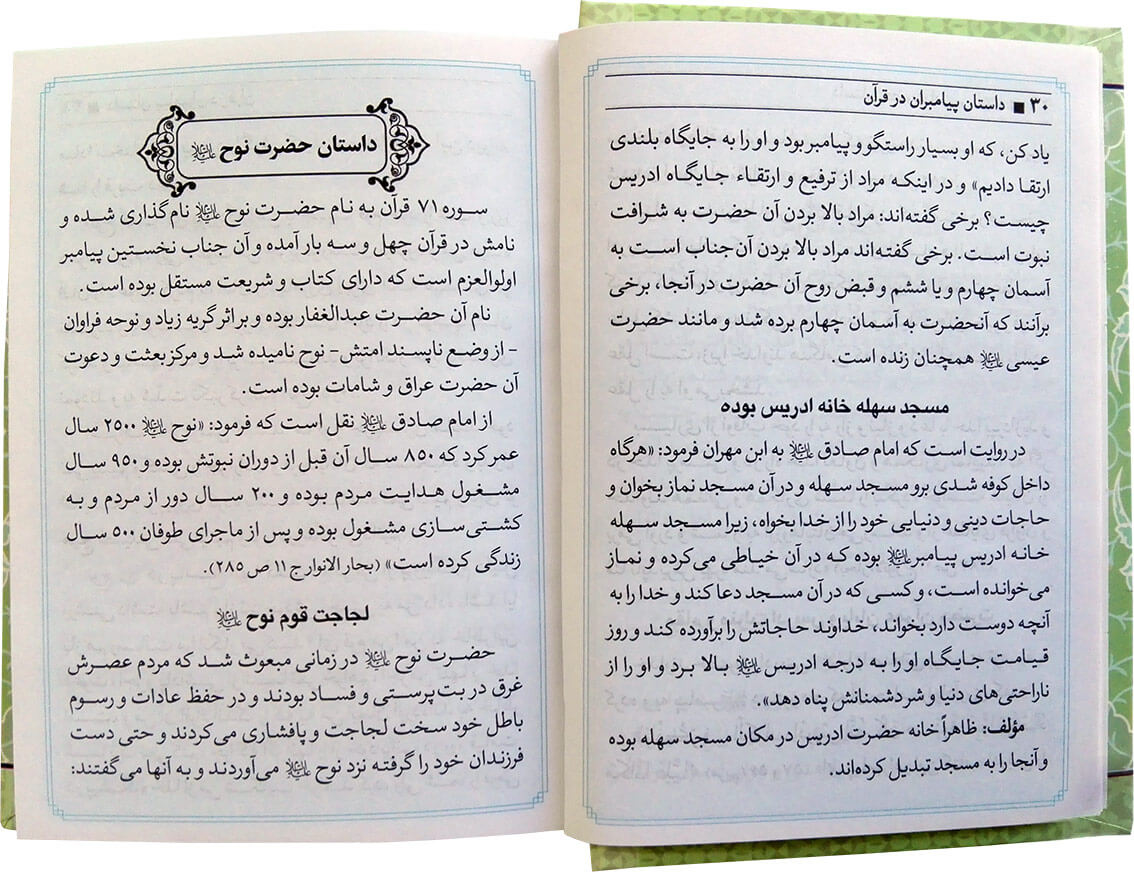 ۳۰ ■ داستان پیامبران در قرآن
یاد کن، که او بسیار راستگو و پیامبر بود و او را به جایگاه بلندی
ارتقا دادیم» و در اینکه مراد از ترفیع و ارتقاء جایگاه ادریس
چیست؟ برخی گفته‌اند: مراد بالا بردن آن حضرت به شرافت
نبوت است. برخی گفته‌اند مراد بالا بردن آن جناب است به
آسمان چهارم و یا ششم و قبض روح آن حضرت در آنجا، برخی
برآنند که آنحضرت به آسمان چهارم برده شد و مانند حضرت
عیسی علیه‌السلام همچنان زنده است.
مسجد سهله خانه ادریس بوده
در روایت است که امام صادق علیه‌السلام به ابن مهران فرمود: «هرگاه
داخل کوفه شدی برو مسجد سهله و در آن مسجد نماز بخوان و
حاجات دینی و دنیایی خود را از خدا بخواه، زیرا مسجد سهله
خانه ادریس پیامبر علیه‌السلام بوده که در آن خیاطی می‌کرده و نماز
می‌خوانده است، و کسی که در آن مسجد دعا کند و خدا را به
آنچه دوست دارد بخواند، خداوند حاجاتش را برآورده کند و روز
قیامت جایگاه او را به درجه ادریس علیه‌السلام بالا برد و او را از
ناراحتی‌های دنیا و شر دشمنانش پناه دهد».
مؤلف: ظاهراً خانه حضرت ادریس در مکان مسجد سهله بوده
و آنجا را به مسجد تبدیل کرده‌اند.
داستان حضرت نوح علیه‌السلام
سوره ۷۱ قرآن به نام حضرت نوح علیه‌السلام نام‌گذاری شده و
نامش در قرآن چهل و سه بار آمده و آن جناب نخستین پیامبر
اولوالعزم است که دارای کتاب و شریعت مستقل بوده است.
نام آن حضرت عبدالغفار بوده و براثر گریه زیاد و نوحه فراوان
- از وضع ناپسند امتش- نوح نامیده شد و مرکز بعثت و دعوت
آن حضرت عراق و شامات بوده است.
از امام صادق علیه‌السلام نقل است که فرمود: «نوح علیه‌السلام ۲۵۰۰ سال
عمر کرد که ۸۵۰ سال آن قبل از دوران نبوتش بوده و ۹۵۰ سال
مشغول هدایت مردم بوده و ۲۰۰ سال دور از مردم و به
کشتی‌سازی مشغول بوده و پس از ماجرای طوفان ۵۰۰ سال
زندگی کرده است» (بحار الانوار ج ۱۱ ص ۲۸۵).
لجاجت قوم نوح علیه‌السلام
حضرت نوح علیه‌السلام در زمانی مبعوث شد که مردم عصرش
غرق در بت‌پرستی و فساد بودند و در حفظ عادات و رسوم
باطل خود سخت لجاجت و پافشاری می‌کردند و حتی دست
فرزندان خود را گرفته نزد نوح علیه‌السلام می‌آوردند و به آنها می‌گفتند: